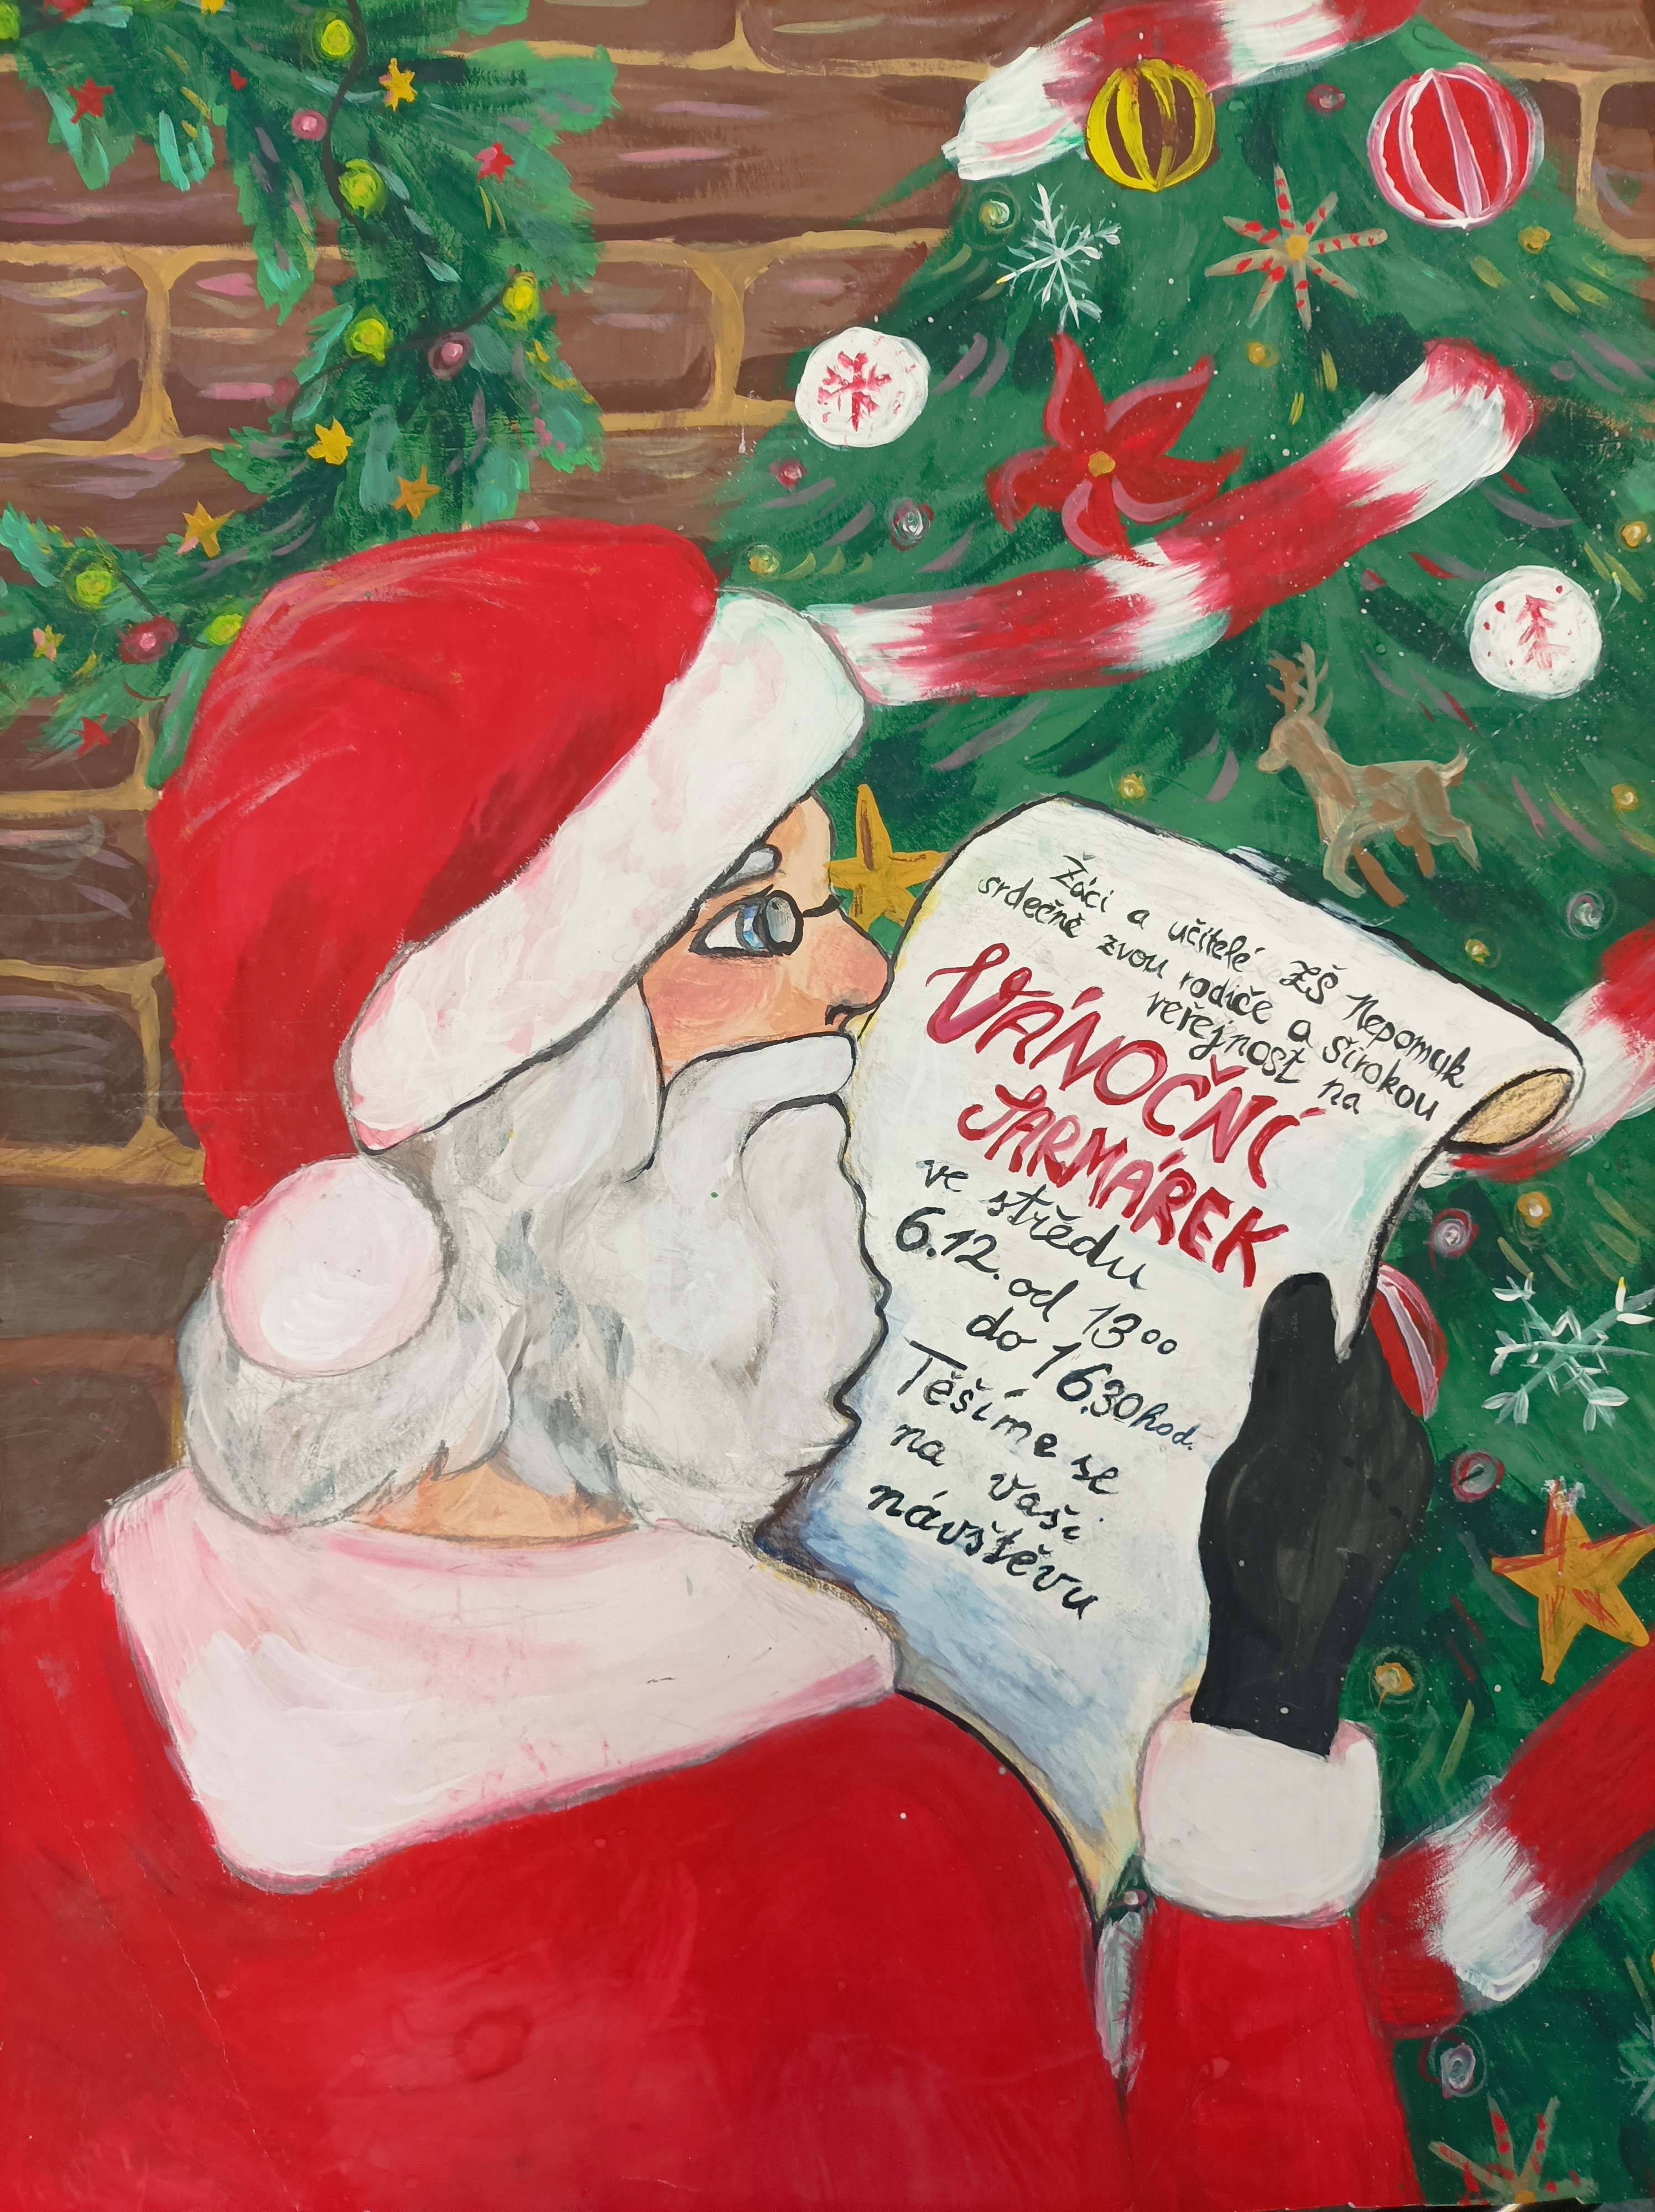 Žáci a učitelé ZŠ Nepomuk
srdečně zvou rodiče a širokou
veřejnost na
VÁNOČNÍ
JARMÁREK
ve středu
6.12. od 13⁰⁰
do 16.30 hod.
Těšíme se
na vaši
návštěvu